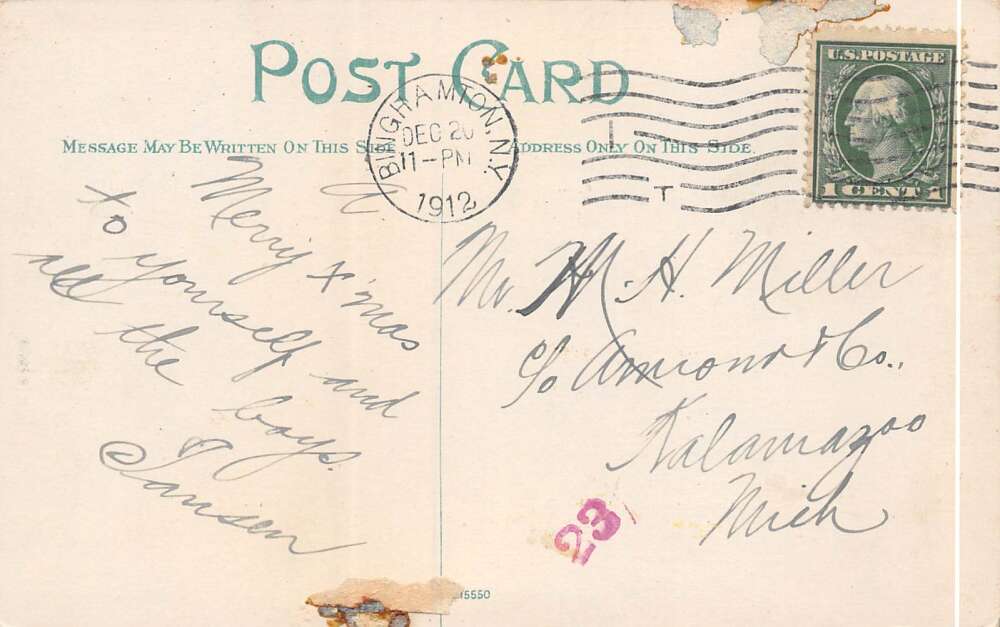 POST CARD
MESSAGE MAY BE WRITTEN ON THIS SIDE
ADDRESS ONLY ON THIS SIDE.
BINGHAMTON, N.Y.
DEC 20
11-PM
1912
T
U.S. POSTAGE
1 CENT 1
A
Merry X'mas
to yourself and
all the boys.
Mr. M. H. Miller
c/o & Co.,
Kalamazoo
Mich
23
15550